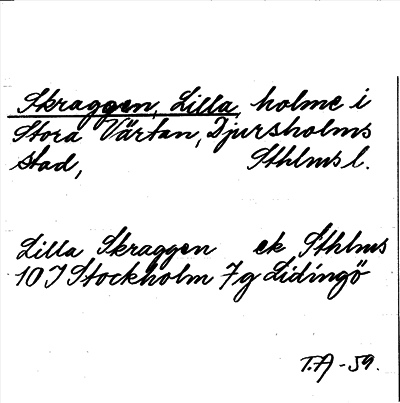 Skraggen, Lilla, holme i
Stora Värtan, Djursholms
stad, Sthlms l.
Lilla Skraggen ek Sthlms
10 J Stockholm 7g Lidingö
T.A -59.